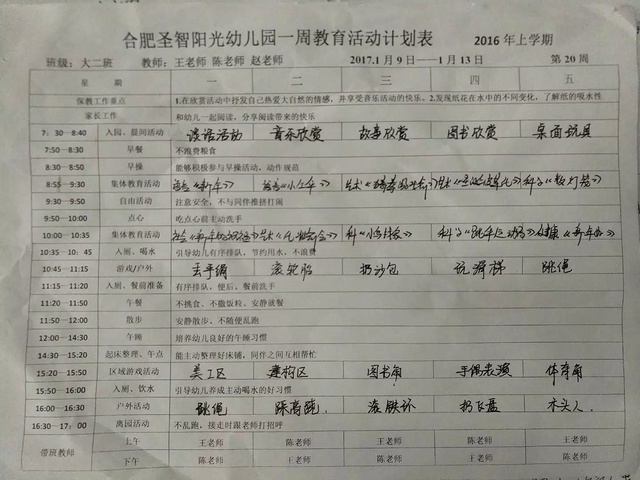 合肥圣智阳光幼儿园一周教育活动计划表 2016年上学期
班级：大二班 教师：王老师 陈老师 赵老师 2017.1月9日——1月13日 第20周
星期 一 二 三 四 五
保教工作重点 1.在欣赏活动中抒发自己热爱大自然的情感，并享受音乐活动的快乐。2.发现纸花在水中的不同变化，了解纸的吸水性
家长工作 和幼儿一起阅读，分享阅读带来的快乐
7：30-8:40 入园、晨间活动 谈话活动 音乐欣赏 故事欣赏 图书欣赏 桌面玩具
7:50-8:30 早餐 不浪费粮食
8:30-8:50 早操 能够积极参与早操活动，动作规范
8:55-9:30 集体教育活动
9:30-9:50 自由活动 注意安全，不与同伴推挤打闹
9:50-10:00 点心 吃点心前主动洗手
10:00-10:35 集体教育活动
10:35-10：45 入厕、喝水 引导幼儿有序排队，节约用水，不浪费
10:45-11:15 游戏/户外 丢手绢 滚轮胎 扔沙包 玩滑梯 跳绳
11:15-11:20 入厕、餐前准备 有序排队，便后、餐前洗手
11:20-11:50 午餐 不挑食、不撒饭粒、安静就餐
11:50-12:00 散步 安静散步、不随便乱跑
12:00-14:30 午睡 培养幼儿良好的午睡习惯
14:30-15:20 起床整理、午点 能主动整理好床铺，同伴之间互相帮忙
15:20-15:50 区域游戏活动 美工区 建构区 图书角 手偶表演 体育角
15:50-16:00 入厕、饮水 引导幼儿养成主动喝水的好习惯
16:00-16:30 户外活动 跳绳 跳高跷 滚铁环 扔飞盘 木头人
16:30-17：00 离园活动 不乱跑，接走时跟老师打招呼
带班教师 上午 王老师 陈老师 王老师 陈老师 王老师
下午 陈老师 王老师 陈老师 王老师 陈老师